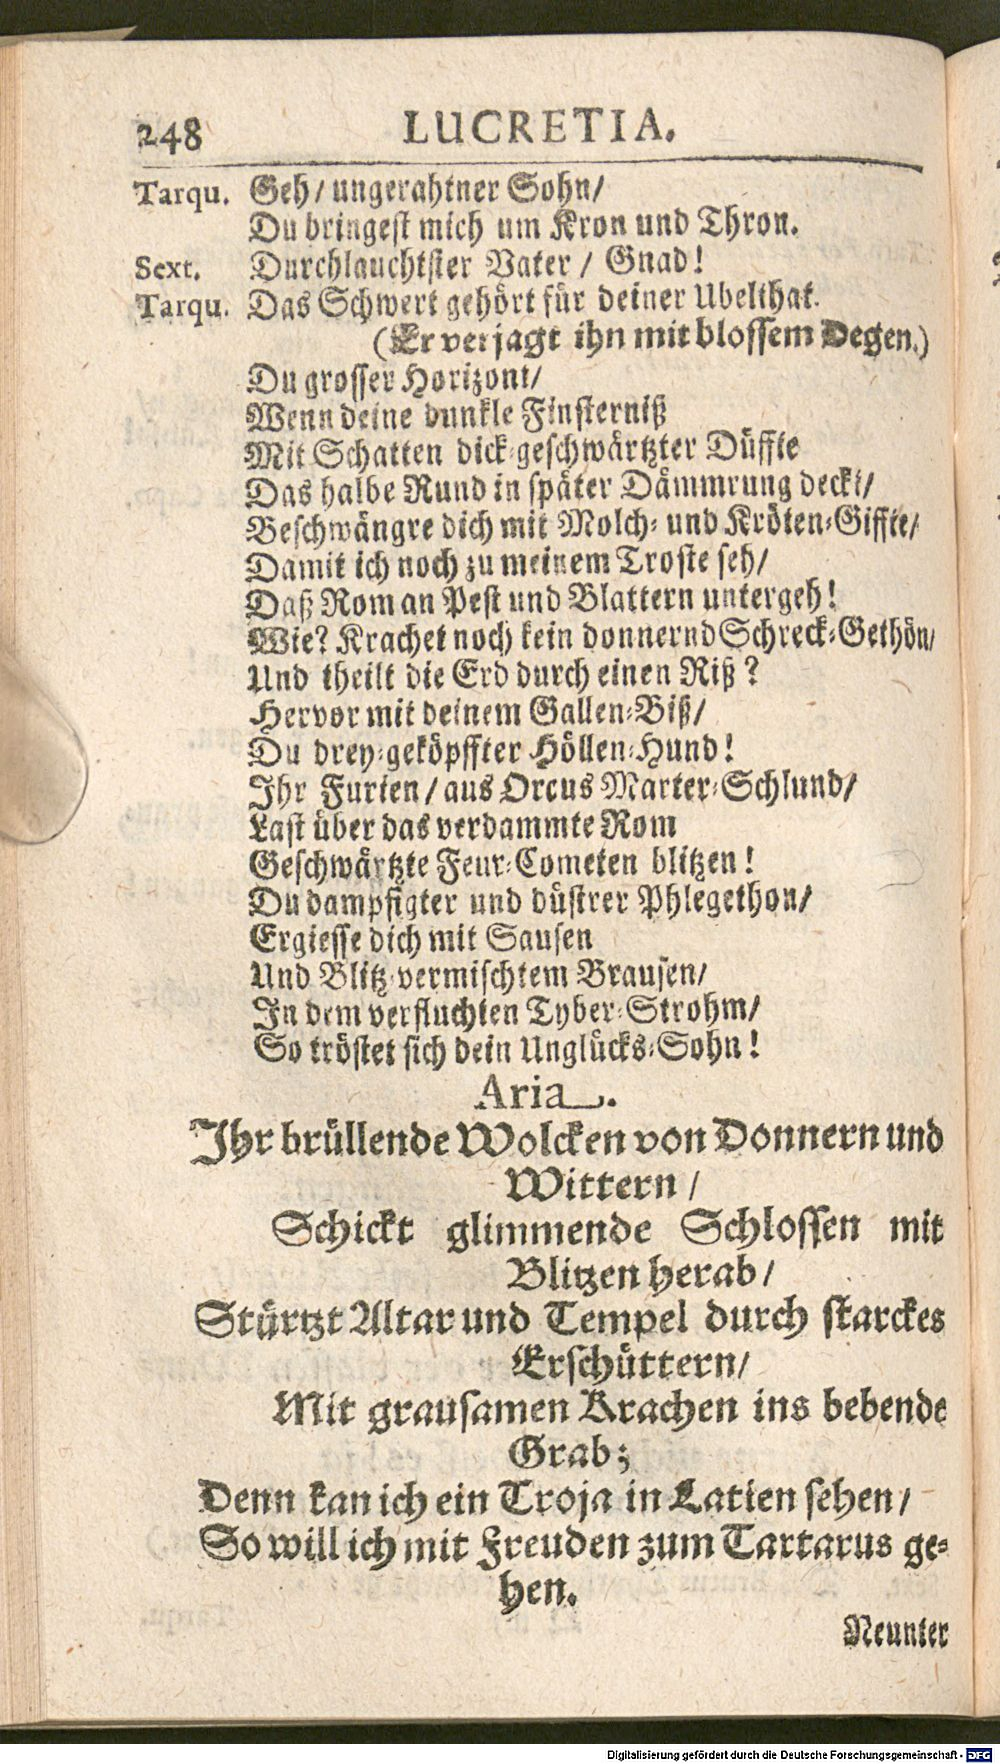 248 LUCRETIA.
Tarqu. Geh/ ungerahtner Sohn/
Du bringest mich um Kron und Thron.
Sext. Durchlauchtster Vater / Gnad!
Tarqu. Das Schwert gehört für deiner Ubelthat.
(Er verjagt ihn mit blossem Degen.)
Du grosser Horizont/
Wenn deine dunkle Finsterniß
Mit Schatten dick-geschwärtzter Düffte
Das halbe Rund in später Dämmrung deckt/
Beschwängre dich mit Molch- und Kröten-Giffte/
Damit ich noch zu meinem Troste seh/
Daß Rom an Pest und Blattern untergeh!
Wie? Krachet noch kein donnernd Schreck-Gethön/
Und theilt die Erd durch einen Riß?
Hervor mit deinem Gallen-Biß/
Du drey-geköpffter Höllen-Hund!
Ihr Furien / aus Orcus Marter-Schlund/
Last über das verdammte Rom
Geschwärtzte Feur-Cometen blitzen!
Du dampfigter und düstrer Phlegethon/
Ergiesse dich mit Sausen
Und Blitz-vermischtem Brausen/
In dem verfluchten Tyber-Strohm/
So tröstet sich dein Unglücks-Sohn!
Aria.
Ihr brüllende Wolcken von Donnern und
Wittern /
Schickt glimmende Schlossen mit
Blitzen herab/
Stürtzt Altar und Tempel durch starckes
Erschüttern/
Mit grausamen Krachen ins bebende
Grab;
Denn kan ich ein Troja in Latien sehen/
So will ich mit Freuden zum Tartarus ge-
hen.
Neunter
Digitalisierung gefördert durch die Deutsche Forschungsgemeinschaft - DFG